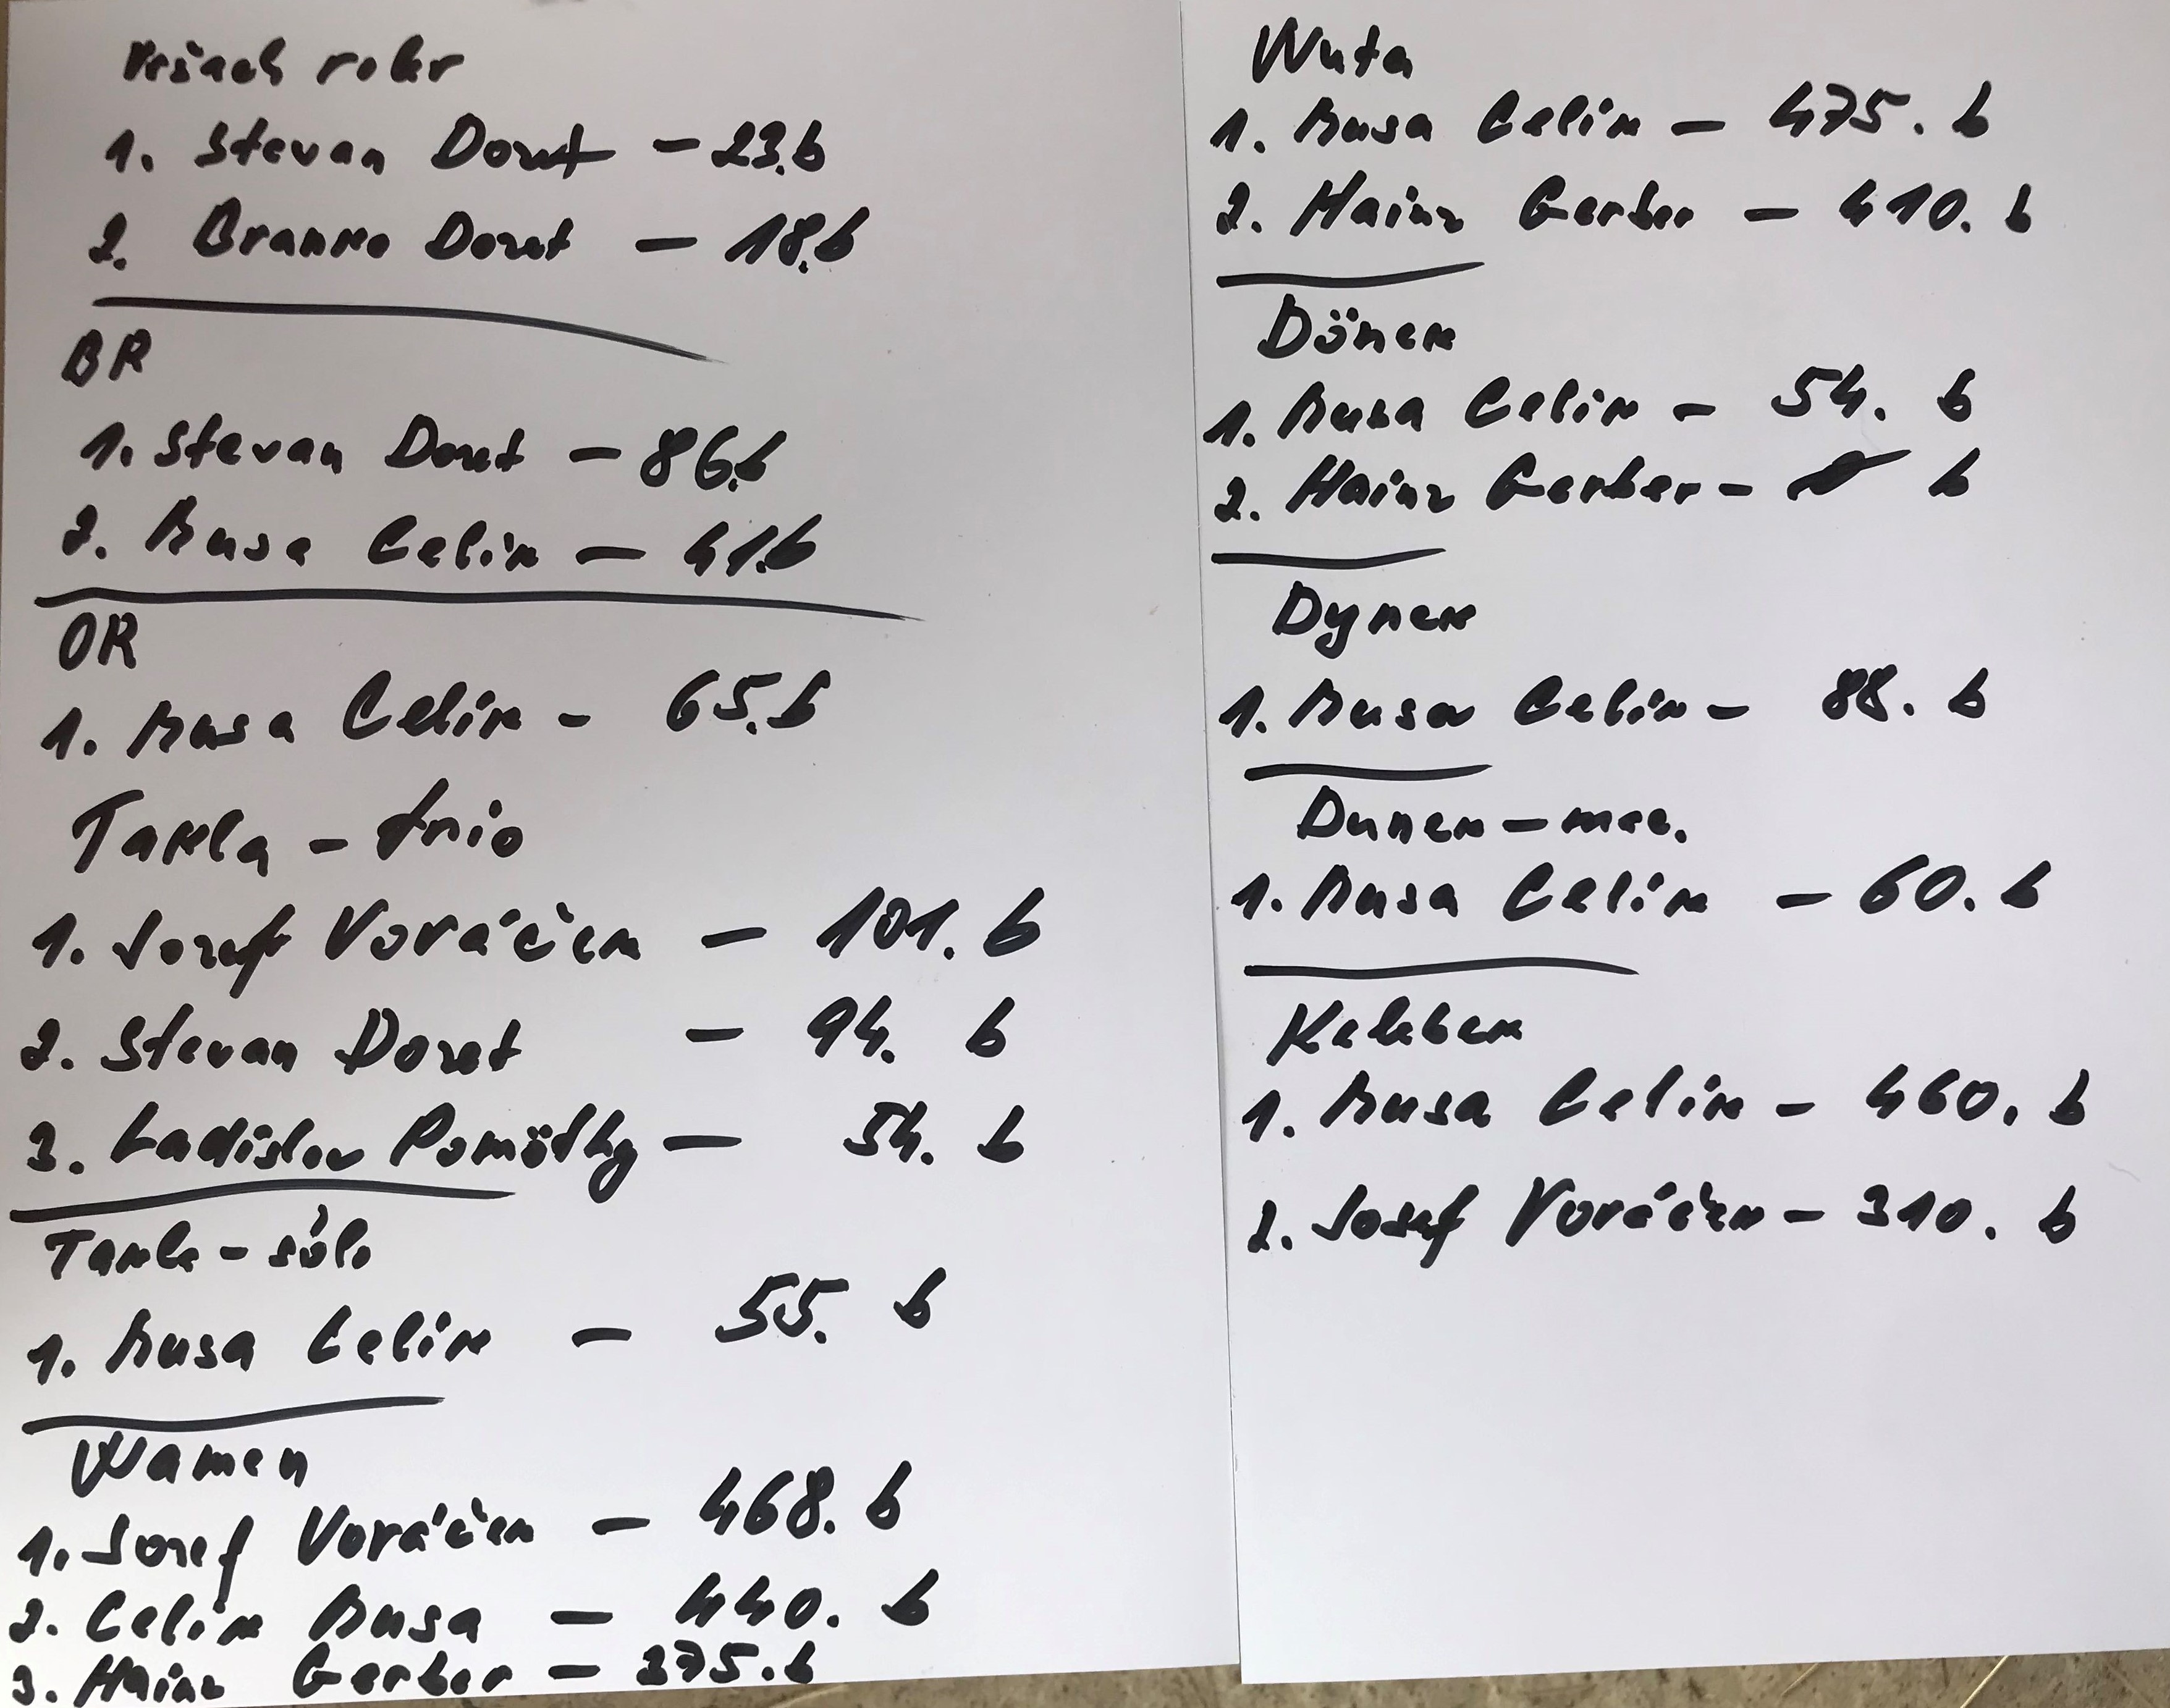 Vršach rohr
1. Stevan Dozet - 23.b
2. Branko Dozet - 18.b
BR
1. Stevan Dozet - 86.b
2. Musa Celik - 41.b
OR
1. Musa Celik - 65.b
Takla - trio
1. Jozef Voráček - 101. b
2. Stevan Dozet - 94. b
3. Ladislav Pomöthy - 54. b
Takla - sólo
1. Musa Celik - 55. b
Wamen
1. Jozef Voráček - 468. b
2. Celik Musa - 440. b
3. Hainz Gerber - 375. b
Wuta
1. Musa Celik - 475. b
2. Hainz Gerber - 410. b
Dönek
1. Musa Celik - 54. b
2. Hainz Gerber - b
Dynek
1. Musa Celik - 88. b
Dunek - mec.
1. Musa Celik - 60. b
Kelebek
1. Musa Celik - 460. b
2. Josef Voráček - 310. b